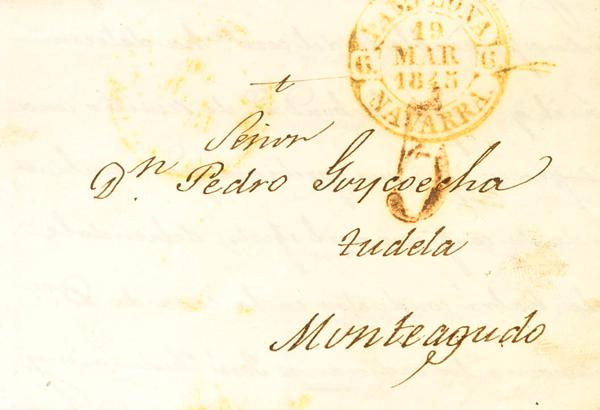 PAMPLONA
19
MAR
1845
6 6
NAVARRA.
Señor
Dn. Pedro Goycoecha
tudela
Monteagudo